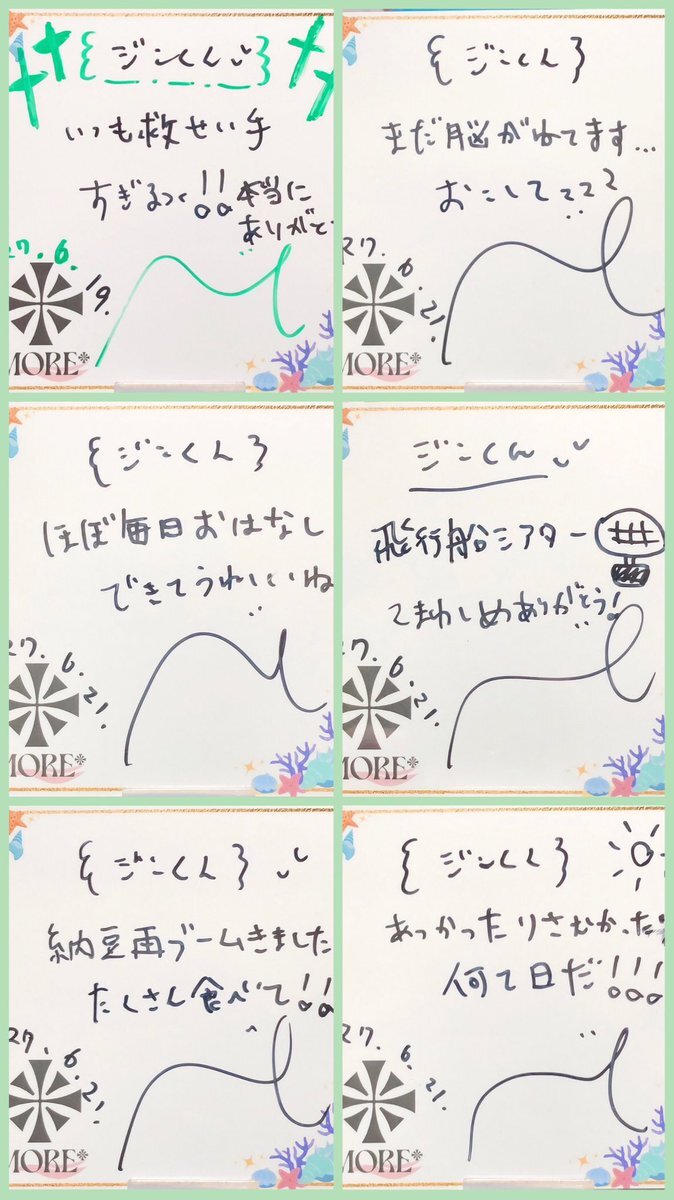 {ジンくん}
いつも救せい手
すぎるって!!本当に
ありがと
27.6.19.
MORE*
{ジンくん}
まだ脳がねてます...
おこしてzzz
27.6.21.
MORE*
{ジンくん}
ほぼ毎日おはなし
できてうれしいね
27.6.21.
MORE*
ジンくん
飛行船シアター
てまわしめありがとう!
27.6.21.
MORE*
{ジンくん}
納豆再ブームきました
たくさん食べて!!
27.6.21.
MORE*
{ジンくん}
あつかったりさむかった
何て日だ!!!
27.6.21.
MORE*